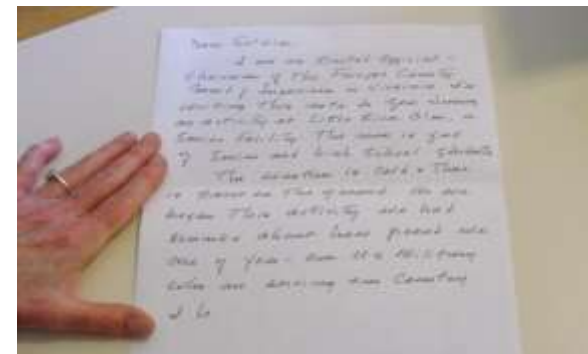 Dear Soldier,
I am an elected official -
Chairman of the Fairfax County
Board of Supervisors in Virginia
writing this note to you during
an activity at Little River Glen, a
Senior facility. The room is full
of Seniors and high school students
The weather is cold
is on the ground. We
began this activity we had
about how proud we
are of you - our US Military
who are serving our Country
I